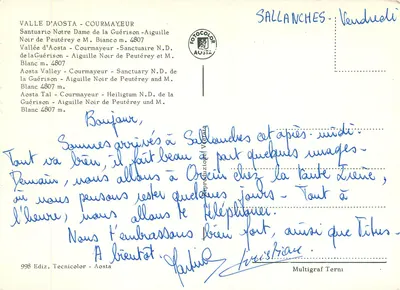 VALLE D'AOSTA - COURMAYEUR
Santuario Notre Dame de la Guérison - Aiguille
Noir de Peutérey e M. Bianco m. 4807
Vallée d'Aoste - Courmayeur - Sanctuaire N.D.
de la Guérison - Aiguille Noir de Peutérey et M.
Blanc m. 4807
Aosta Valley - Courmayeur - Sanctuary N.D. de
la Guérison - Aiguille Noir de Peutérey und M.
Blanc m. 4807
Aosta Tal - Courmayeur - Heiligtum N.D. de la
Guérison - Aiguille Noir de Peutérey and M.
Blanc m. 4807
FOTOCOLOR
AOSTA
SALLANCHES. Vendredi
Bonjour,
Sommes arrivés à Sallanches cet après-midi.
Tout va bien, il fait beau à part quelques nuages.
Demain, nous allons à chez la tante
où nous pensons rester quelques jours - Tout à
l'heure, nous allons te téléphoner.
Nous t'embrassons bien fort, ainsi que Titus.
A bientôt Christiane.
998 Ediz. Tecnicolor - Aosta
Multigraf Terni